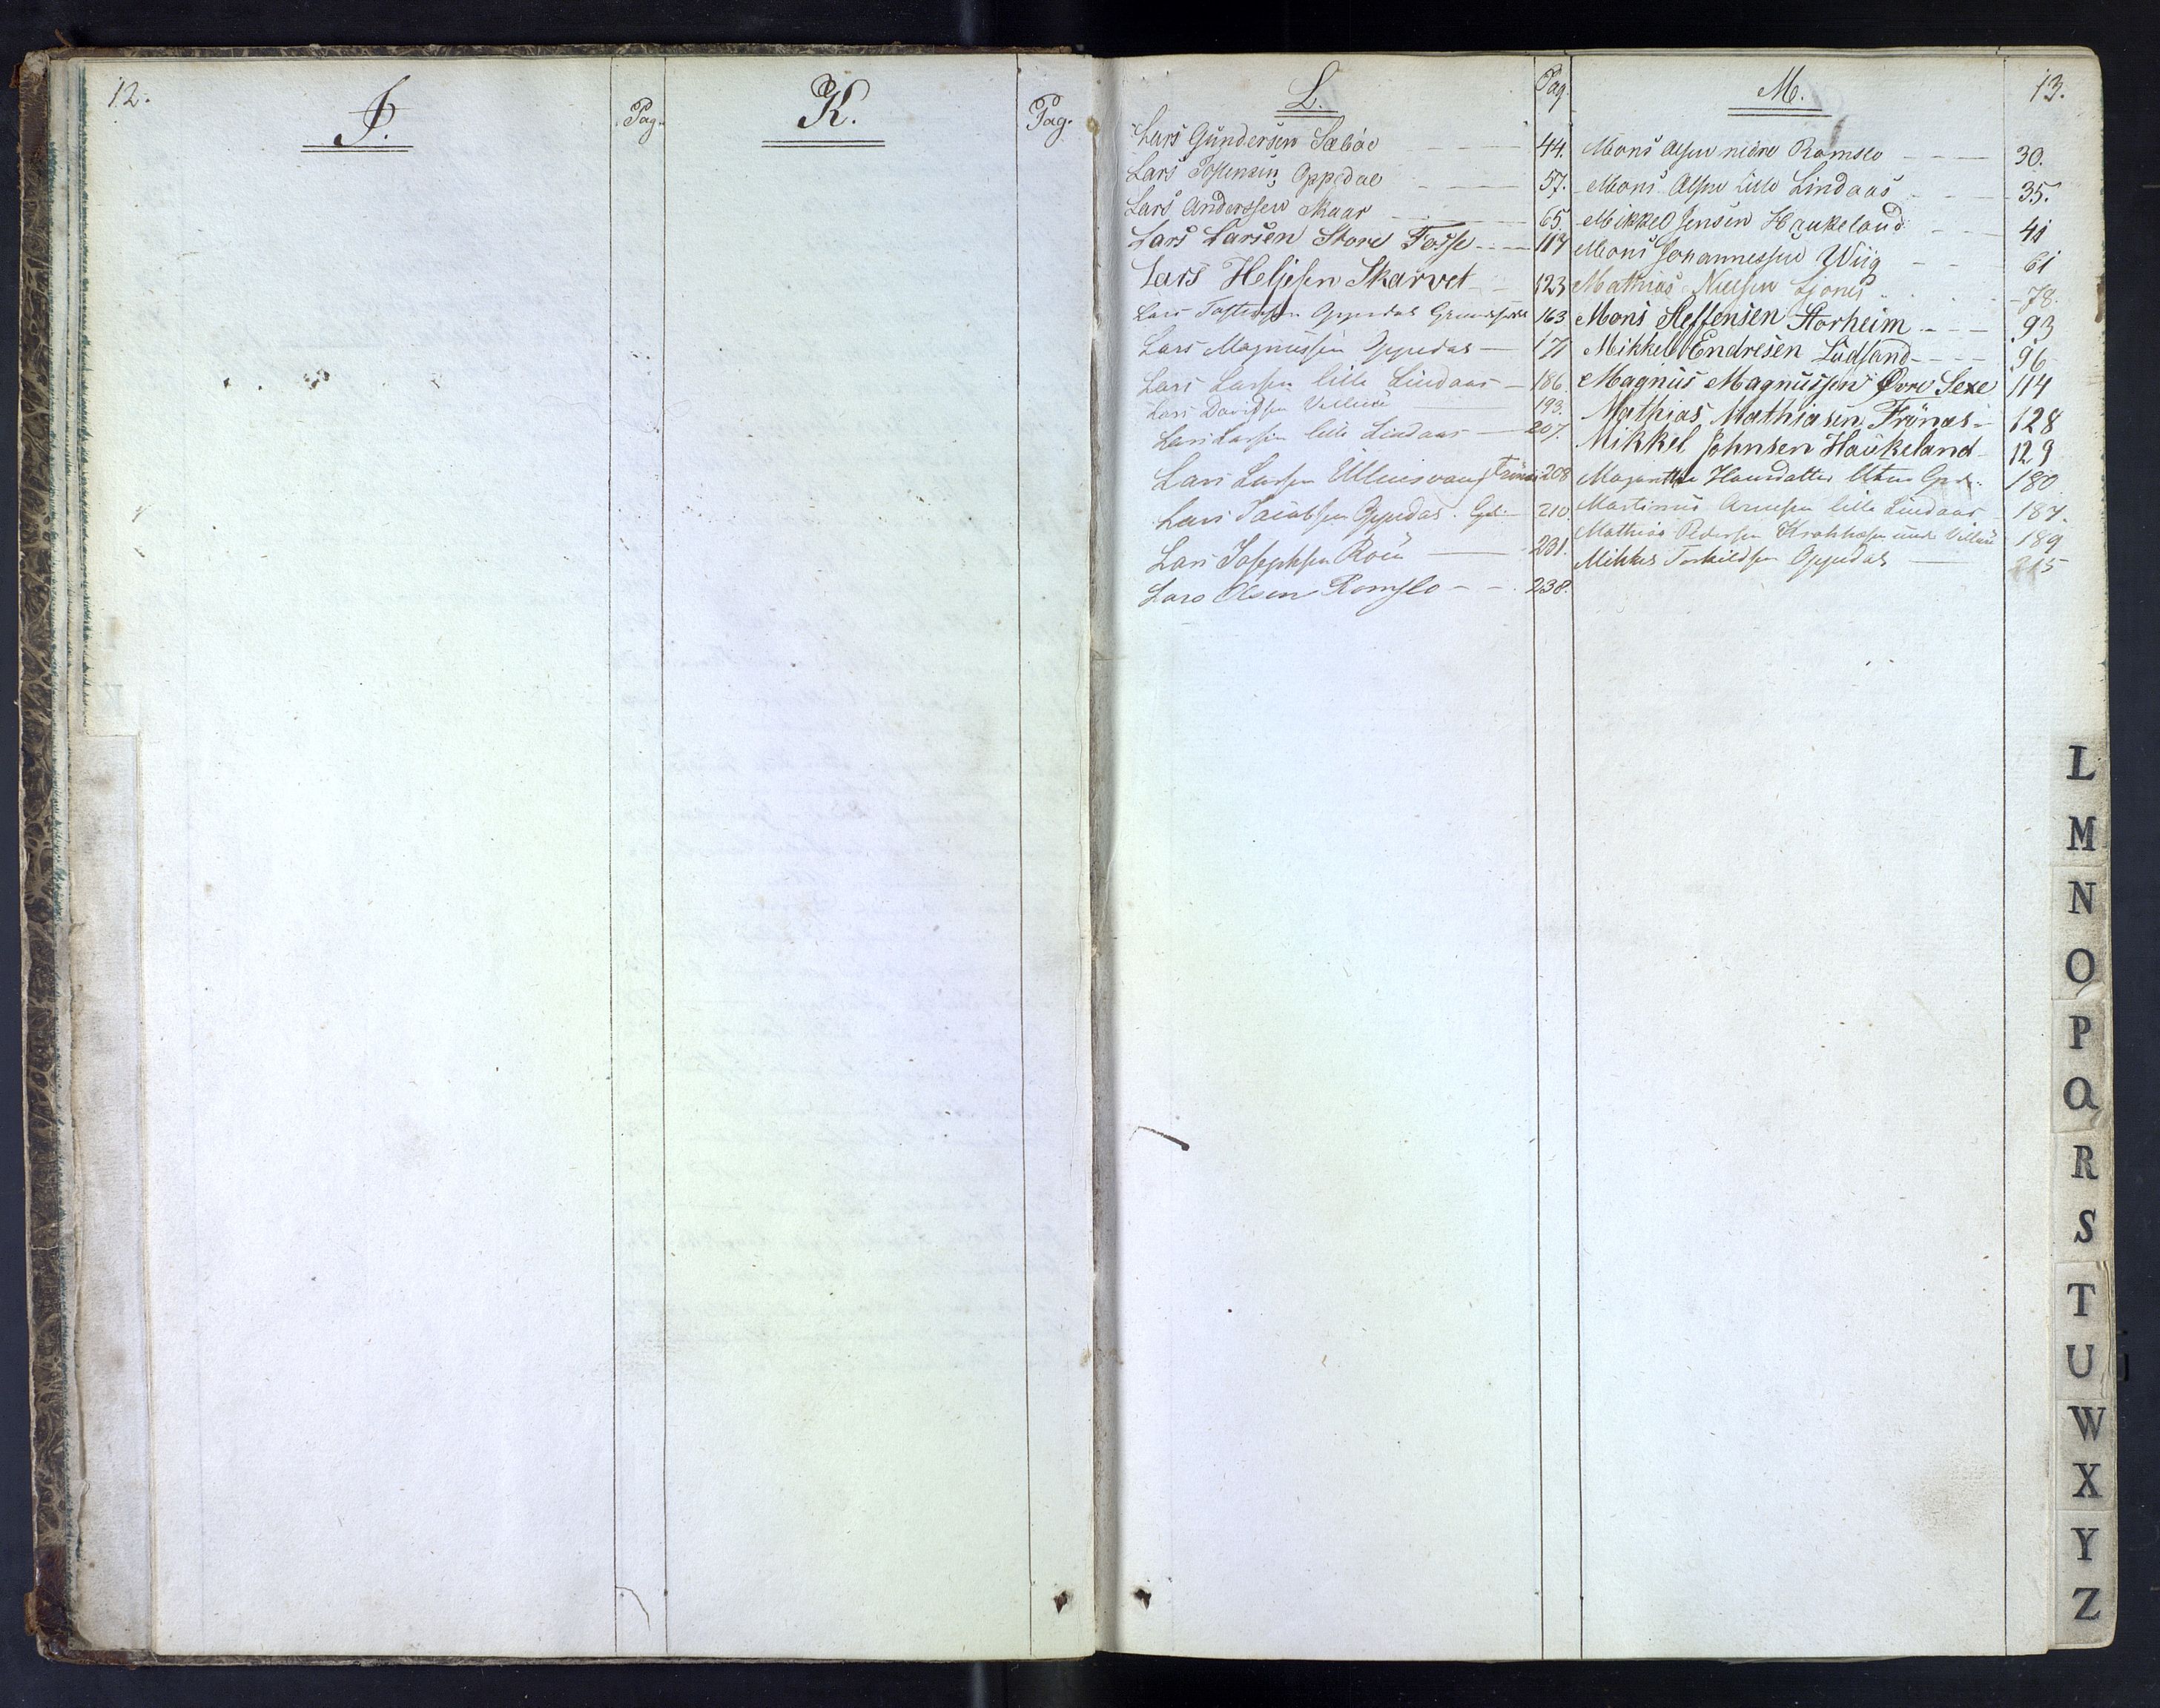 12.
J.
Pag.
K.
Pag.
L.
Pag.
Lars Gundersen Sæbøe 44.
Lars Tostensen Oppedal 57.
Lars Anderssen Skaar 65.
Lars Larsen Store Fosse 117
Lars Heljesen Skarvet 123
Lars Tostensen Oppedal 163
Lars Magnussen Oppedal 171
Lars Larsen lille Lindaas 186.
Lars Davidsen 193.
Lars Larsen lille Lindaas 207.
Lars Larsen Ullensvang 208
Lars Jacobsen Oppedal. 210.
Lars Josephsen 231.
Lars Olsen Romslo 238.
M.
13.
Mons Olsen nedre Romslo 30.
Mons Olsen Lille Lindaas 35.
Mikkel Jensen Haukeland 41
Mons Johannessen Wiig 61
Mathias Nielsen Ljones 78.
Mons Steffensen Storheim 93
Mikkel Endresen Ludsand 96
Magnus Magnussen Øvre Sexe 114
Mathias Mathiasen Frønæs 128
Mikkel Johnsen Haukeland 129
Hansdatter 180
Martinus Arnesen lille Lindaas 187.
Mathias Pedersen 189
Mikkel Torkildsen Oppedal 215
L
M
N
O
P
Q
R
S
T
U
W
X
Y
Z